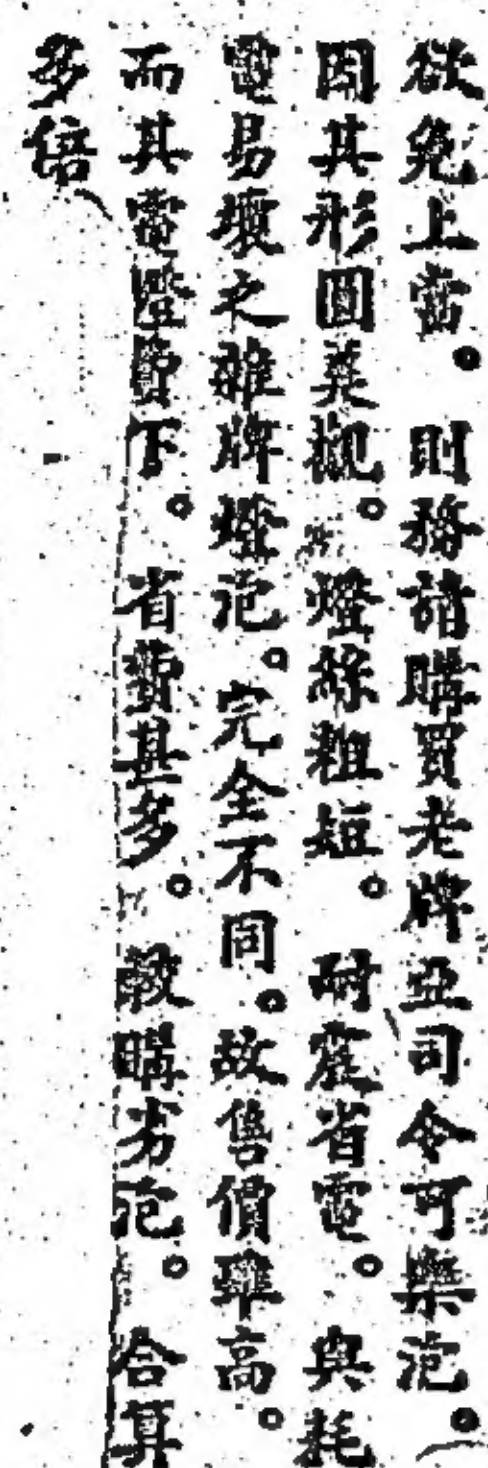 欲免上當。則務請購買老牌亞司令可樂泡。
因其形圓美觀。燈絲粗短。耐震省電。與耗
電易壞之雜牌燈泡。完全不同。故售價雖高。
而其電燈費下。省費甚多。較購劣泡。合算
多倍